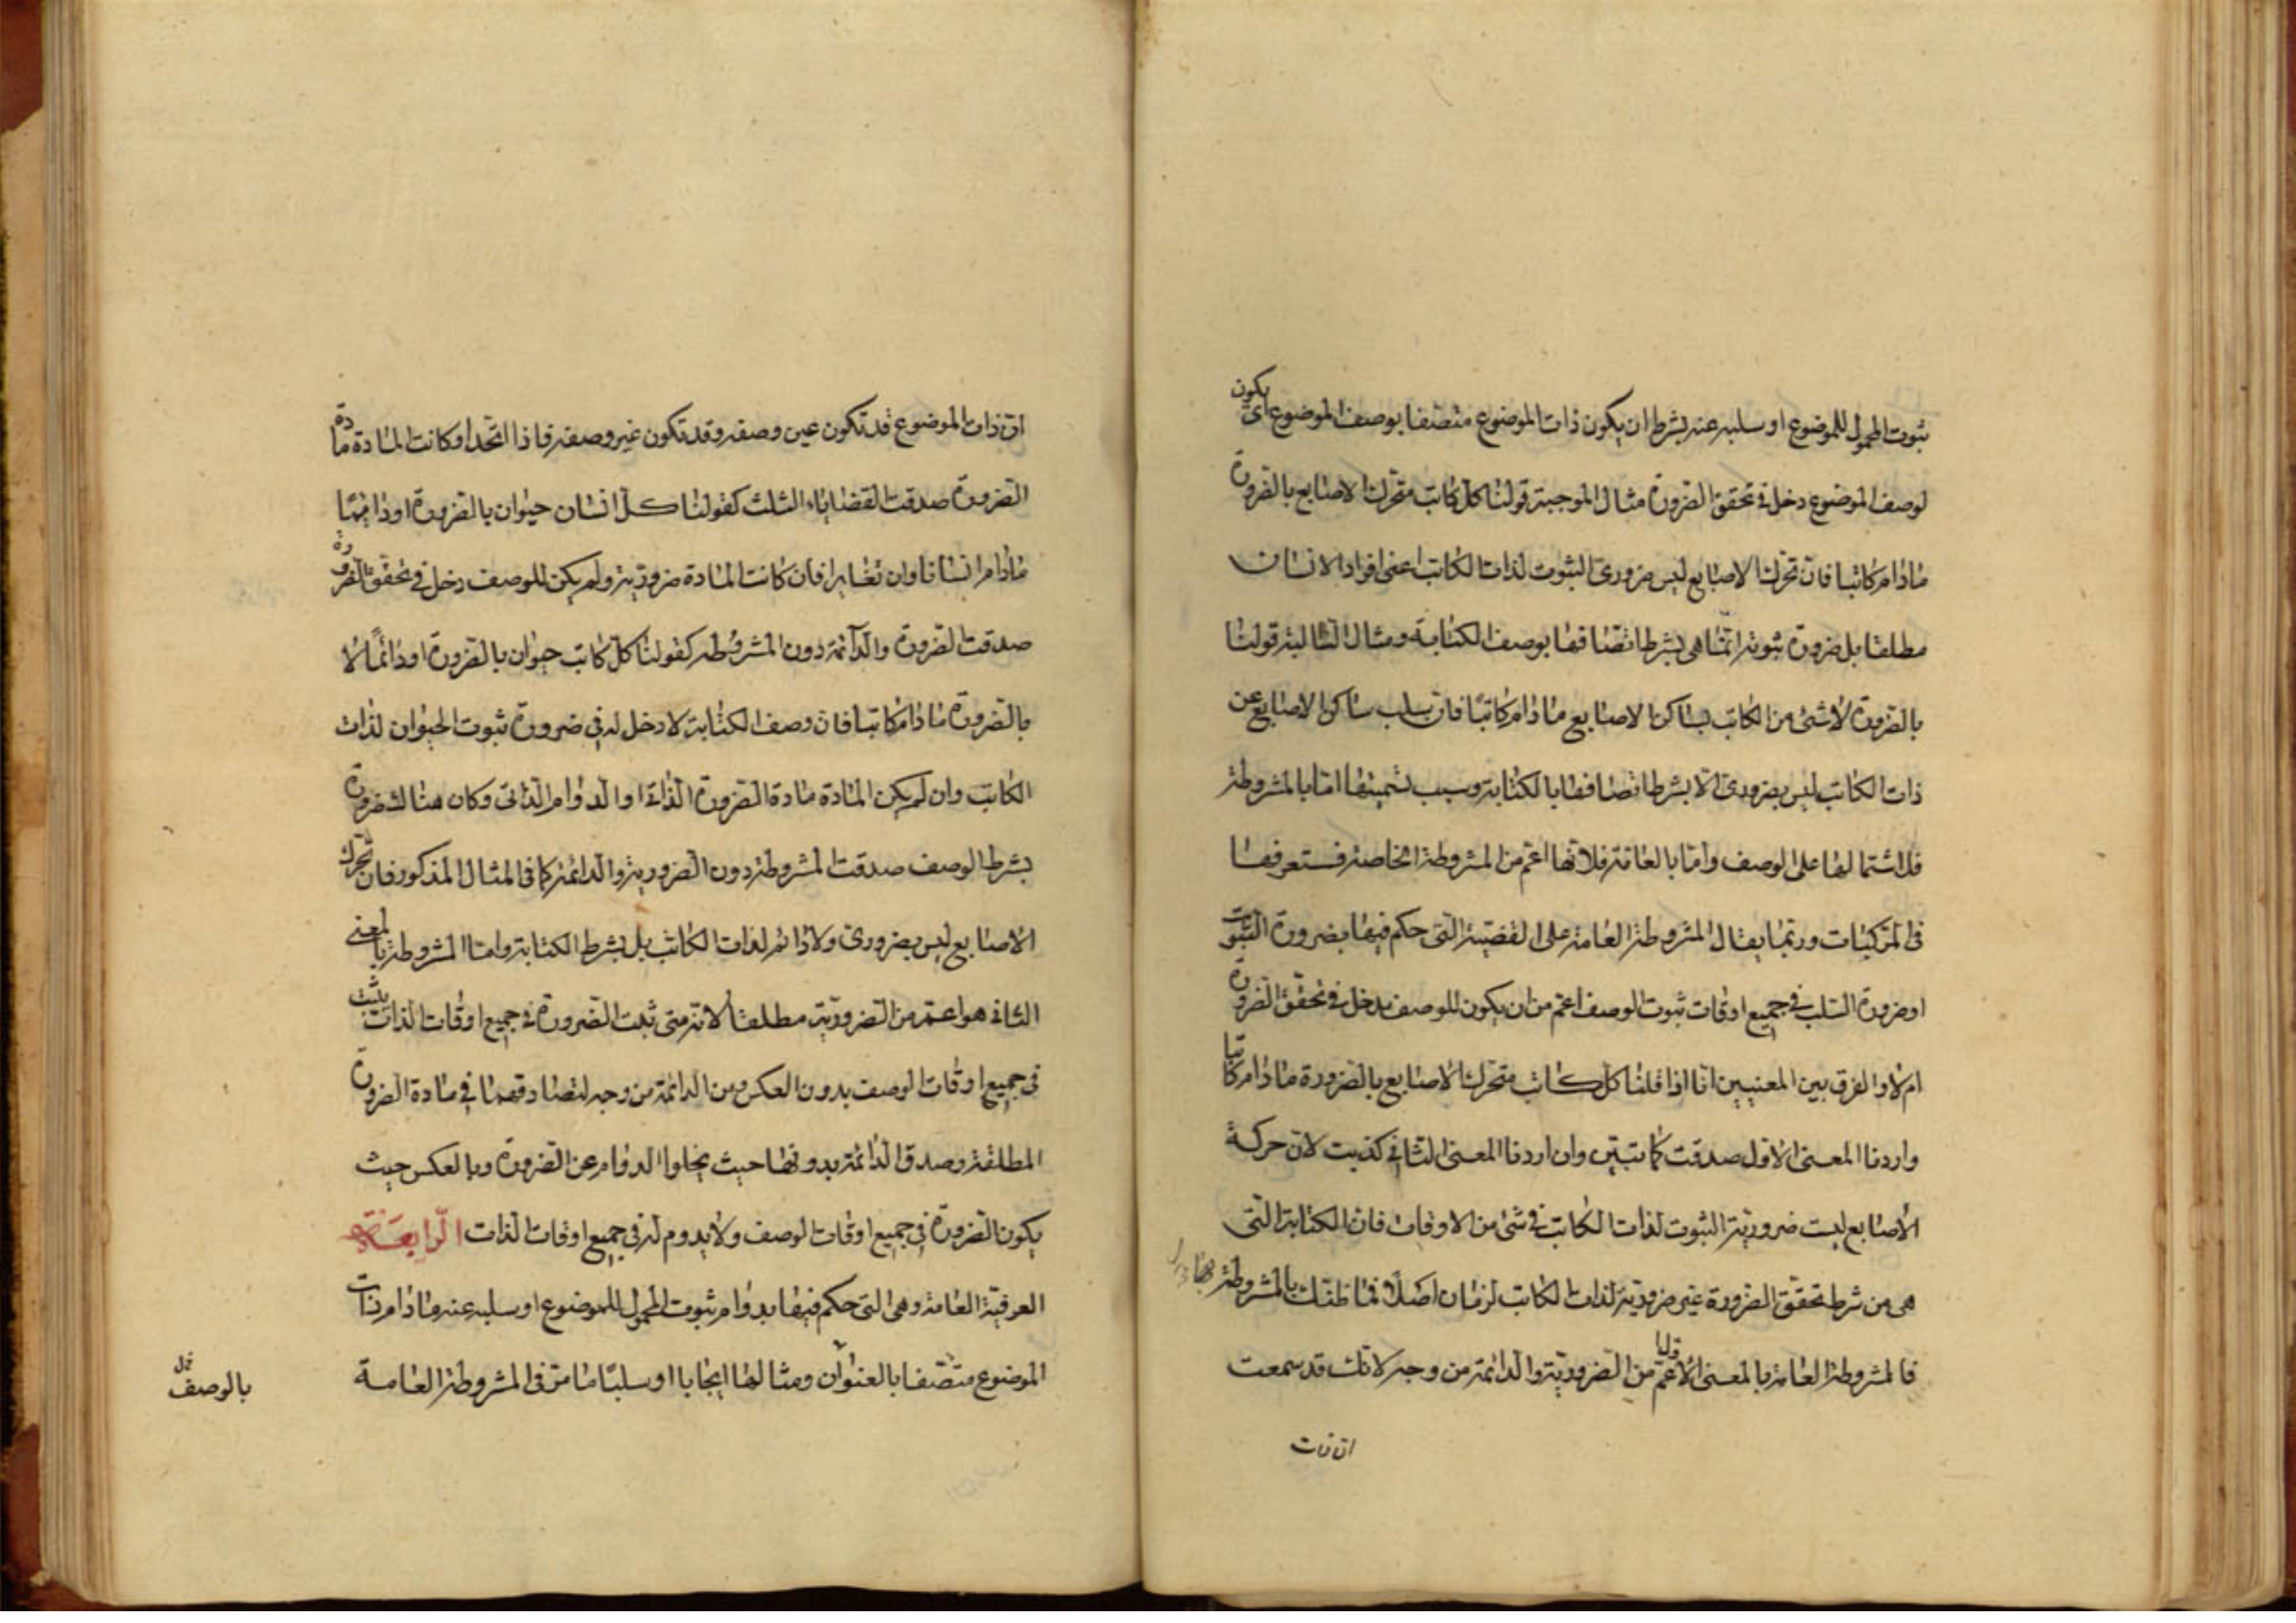 ثبوت المحمول للموضوع او سلبه عنه بشرط ان يكون ذات الموضوع متصفا بوصف الموضوع اى يكون
لوصف الموضوع دخل فى تحقق الضرورة مثال الموجبة قولنا كل كاتب متحرك الاصابع بالضرورة
مادام كاتبا فان تحرك الاصابع ليس ضرورى الثبوت لذات الكاتب اعنى افراد الانسان
مطلقا بل ضرورة ثبوته انما هى بشرط اتصافها بوصف الكتابة ومثال السالبة قولنا
بالضرورة لا شئ من الكاتب بساكن الاصابع مادام كاتبا فان سلب ساكن الاصابع عن
ذات الكاتب ليس بضرورى الا بشرط اتصافها بالكتابة وسبب تسميتها اما بالمشروطة
فلاشتمالها على الوصف واما بالعامة فلانها اعم من المشروطة الخاصة فستعرفها
فى المركبات وربما يقال المشروطة العامة على القضية التى حكم فيها بضرورة الثبوت
او ضرورة السلب فى جميع اوقات ثبوت الوصف اعم من ان يكون للوصف مدخل فى تحقق الضرورة
ام لا والفرق بين المعنيين انا اذا قلنا كل كاتب متحرك الاصابع بالضرورة مادام كاتبا
واردنا المعنى الاول صدقت كما تبين وان اردنا المعنى الثانى كذبت لان حركة
الاصابع ليست ضرورية الثبوت لذات الكاتب فى شئ من الاوقات فان الكتابة التى
هى من شرط تحقق الضرورة غير ضرورية لذات الكاتب لزمان اصلا فما ظنك بالمشروطة بها
فالمشروطة العامة بالمعنى الاعم من الضرورية والدائمة من وجه لانك قد سمعت
ان ذات
ان ذات الموضوع قد تكون عين وصفه وقد تكون غير وصفه فاذا اتحدا وكانت المادة مادة
الضرورة صدقت القضاياء الثلث كقولنا كل انسان حيوان بالضرورة او دائما
مادام انسانا وان تغايرا فان كانت المادة ضرورية ولم يكن للوصف دخل فى تحقق الضرورة
صدقت الضرورة والدائمة دون المشروطة كقولنا كل كاتب حيوان بالضرورة او دائما لا
بالضرورة مادام كاتبا فان وصف الكتابة لا دخل له فى ضرورة ثبوت الحيوان لذات
الكاتب وان لم يكن المادة مادة الضرورة الذاتية او الدوام الذاتى وكان هناك ضرورة
بشرط الوصف صدقت المشروطة دون الضرورية والدائمة كما فى المثال المذكور فان تحرك
الاصابع ليس بضرورى ولا دائم لذات الكاتب بل بشرط الكتابة واما المشروطة بالمعنى
الثانى هو اعم من الضرورية مطلقا لانه متى ثبت الضرورة فى جميع اوقات الذات يثبت
فى جميع اوقات الوصف بدون العكس ومن الدائمة من وجه لتصادقهما فى مادة الضرورة
المطلقة وصدق الدائمة بدونها حيث يخلوا الدوام عن الضرورة وبالعكس حيث
يكون الضرورة فى جميع اوقات الوصف ولا يدوم له فى جميع اوقات الذات الرابعة
العرفية العامة وهى التى حكم فيها بدوام ثبوت المحمول للموضوع او سلبه عنه مادام ذات
الموضوع متصفا بالعنوان ومثالها ايجابا او سلبا ما مر فى المشروطة العامة
بالوصف